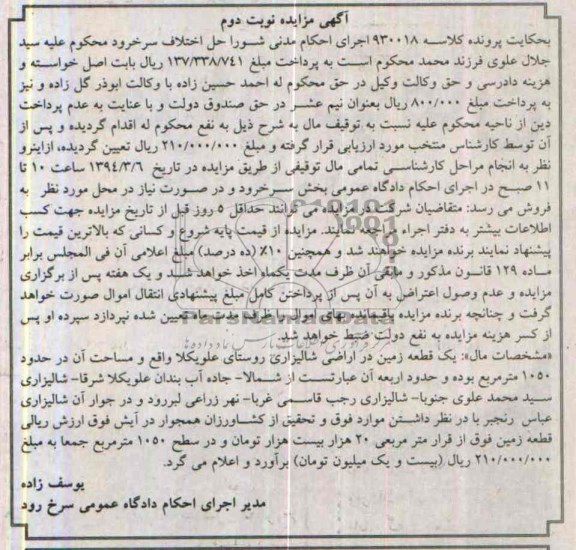 آگهی مزایده نوبت دوم
بحکایت پرونده کلاسه ۹۳۰۰۱۸ اجرای احکام مدنی شورا حل اختلاف سرخرود محکوم علیه سید
جلال علوی فرزند محمد محکوم است به پرداخت مبلغ ۱۳۷/۳۳۸/۷۴۱ ریال بابت اصل خواسته و
هزینه دادرسی و حق وکالت وکیل در حق محکوم له احمد حسین زاده با وکالت ابوذر گل زاده و نیز
به پرداخت مبلغ ۸۰۰/۰۰۰ ریال بعنوان نیم عشر در حق صندوق دولت و با عنایت به عدم پرداخت
دین از ناحیه محکوم علیه نسبت به توقیف مال به شرح ذیل به نفع محکوم له اقدام گردیده و پس از
آن توسط کارشناس منتخب مورد ارزیابی قرار گرفته و مبلغ ۲۱۰/۰۰۰/۰۰۰ ریال تعیین گردیده، ازاینرو
نظر به انجام مراحل کارشناسی تمامی مال توقیفی از طریق مزایده در تاریخ ۱۳۹۴/۳/۶ ساعت ۱۰ تا
۱۱ صبح در اجرای احکام دادگاه عمومی بخش سرخرود و در صورت نیاز در محل مورد نظر به
فروش می رسد: متقاضیان شرکت در مزایده می توانند حداقل ۵ روز قبل از تاریخ مزایده جهت کسب
اطلاعات بیشتر به دفتر اجراء مراجعه نمایند. مزایده از قیمت پایه شروع و کسانی که بالاترین قیمت را
پیشنهاد نمایند برنده مزایده خواهند شد و همچنین ۱۰٪ (ده درصد) مبلغ اعلامی آن فی المجلس برابر
ماده ۱۲۹ قانون مذکور و مابقی آن ظرف مدت یکماه اخذ خواهد شد و یک هفته پس از برگزاری
مزایده و عدم وصول اعتراض به آن پس از پرداختن کامل مبلغ پیشنهادی انتقال اموال صورت خواهد
گرفت و چنانچه برنده مزایده باقیمانده بهای اموال را ظرف مدت ماه تعیین شده نپردازد سپرده او پس
از کسر هزینه مزایده به نفع دولت ضبط خواهد شد.
«مشخصات مال»: یک قطعه زمین در اراضی شالیزاری روستای علویکلا واقع و مساحت آن در حدود
۱۰۵۰ مترمربع بوده و حدود اربعه آن عبارتست از شمالا- جاده آب بندان علویکلا شرقا- شالیزاری
سید محمد علوی جنوبا- شالیزاری رجب قاسمی غربا- نهر زراعی لبررود و در جوار آن شالیزاری
عباس رنجبر با در نظر داشتن موارد فوق و تحقیق از کشاورزان همجوار در آیش فوق ارزش ریالی
قطعه زمین فوق از قرار متر مربعی ۲۰ هزار بیست هزار تومان و در سطح ۱۰۵۰ مترمربع جمعا به مبلغ
۲۱۰/۰۰۰/۰۰۰ ریال (بیست و یک میلیون تومان) برآورد و اعلام می گرد.
یوسف زاده
مدیر اجرای احکام دادگاه عمومی سرخ رود
ParsNamadData